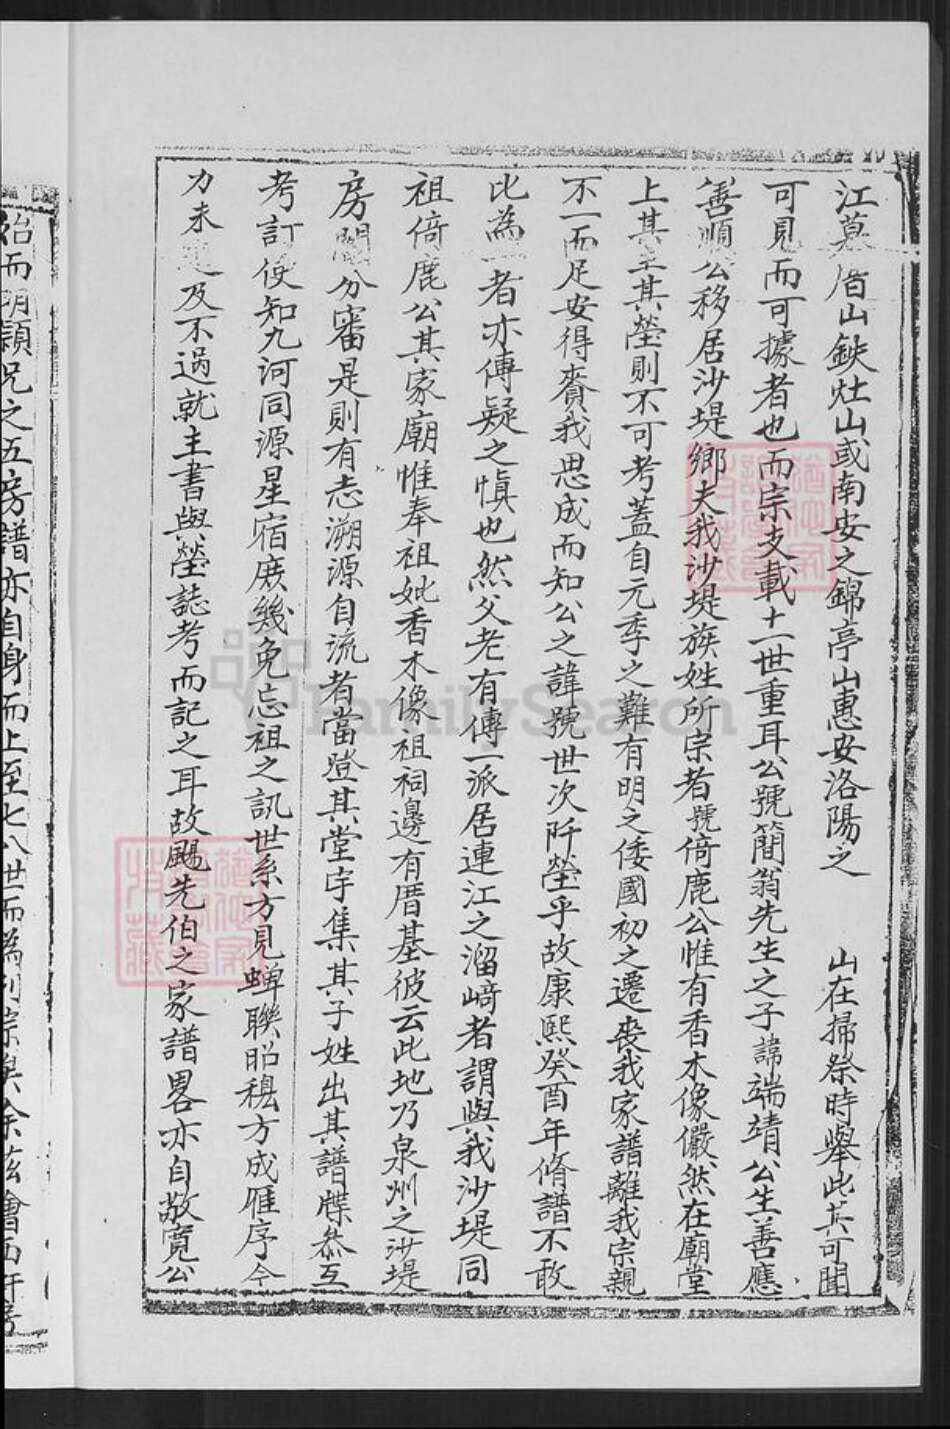 江墓眉山鈇灶山或南安之錦亭山惠安洛陽之　　山在掃祭時舉此其可聞
可見而可據者也而宗支載十一世重耳公號簡翁先生之子諱端靖公生善應
善順公移居沙堤鄉夫我沙堤族姓所宗者號倚鹿公惟有香木像儼然在廟堂
上其主其塋則不可考蓋自元季之難有明之倭國初之遷喪我家譜離我宗親
不一而足安得賚我思成而知公之諱號世次阡塋乎故康熙癸酉年脩譜不敢
比為一者亦傳疑之慎也然父老有傳一派居連江之溜﨑者謂與我沙堤同
祖倚鹿公其家廟惟奉祖妣香木像祖祠邊有厝基彼云此地乃泉州之沙堤
房開分審是則有志溯源自流者當登其堂宇集其子姓出其譜牒叅互
考訂使知九河同源星宿厥幾免忘祖之訊世系方見蟬聯昭穆方成雁序今
力未及不過就主書與塋誌考而記之耳故颺先伯之家譜畧亦自敬寬公
而明穎兄之五房譜亦自身而上至七八世而為別宗與余茲會西軒
FamilySearch